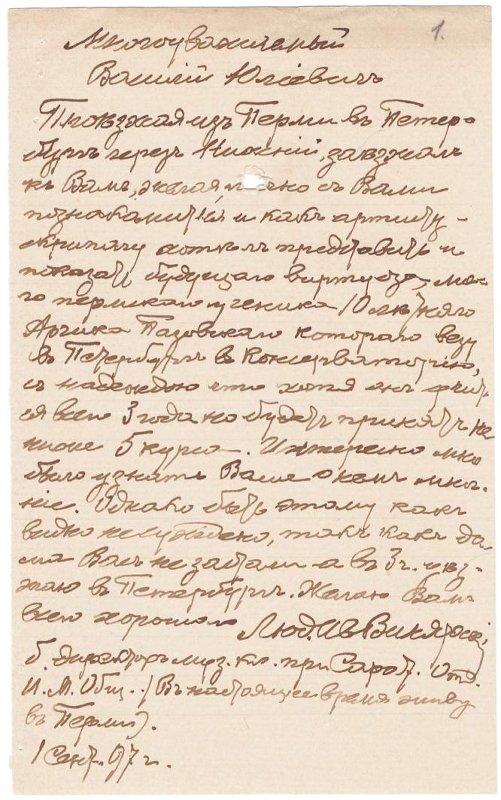 1.
Многоуважаемый
Василій Юліевичъ
Проѣзжая изъ Перми въ Петер-
бургъ черезъ Нижній, заѣзжалъ
къ Вамъ, желая лично съ Вами
познакомиться и какъ артисту-
скрипачу хотѣлъ представить и
показать будущаго виртуоза, мое-
го пермскаго ученика 10 лѣтняго
Арчика Пазовскаго котораго везу
въ Петербургъ въ Консерваторію,
съ надеждою что хотя онъ учит-
ся всего 3 года но будетъ принятъ не
ниже 5 курса. Интересно мнѣ
было узнать Ваше о немъ мнѣ-
ніе. Однако быть этому какъ
видно не суждено, такъ какъ до-
ма Васъ не застали а въ 3 ч. уѣз-
жаю въ Петербургъ. Желаю Вамъ
всего хорошаго
б. директоръ муз. кл. при Сарат. Отд.
И. М. Общ. (Въ настоящее время живу
въ Перми).
1 Сент. 97 г.